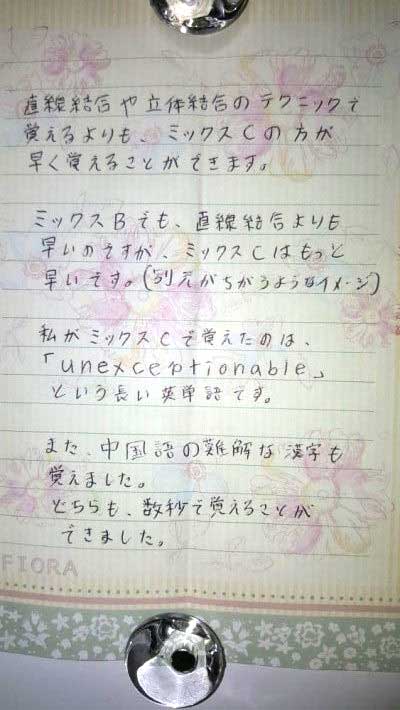 直線結合や立体結合のテクニックで
覚えるよりも、ミックスCの方が
早く覚えることができます。
ミックスBでも、直線結合よりも
早いのですが、ミックスCはもっと
早いです。(別元がちがうようなイメージ)
私がミックスCで覚えたのは、
「unexceptionable」
という長い英単語です。
また、中国語の難解な漢字も
覚えました。
どちらも、数秒で覚えることが
できました。
FIORA